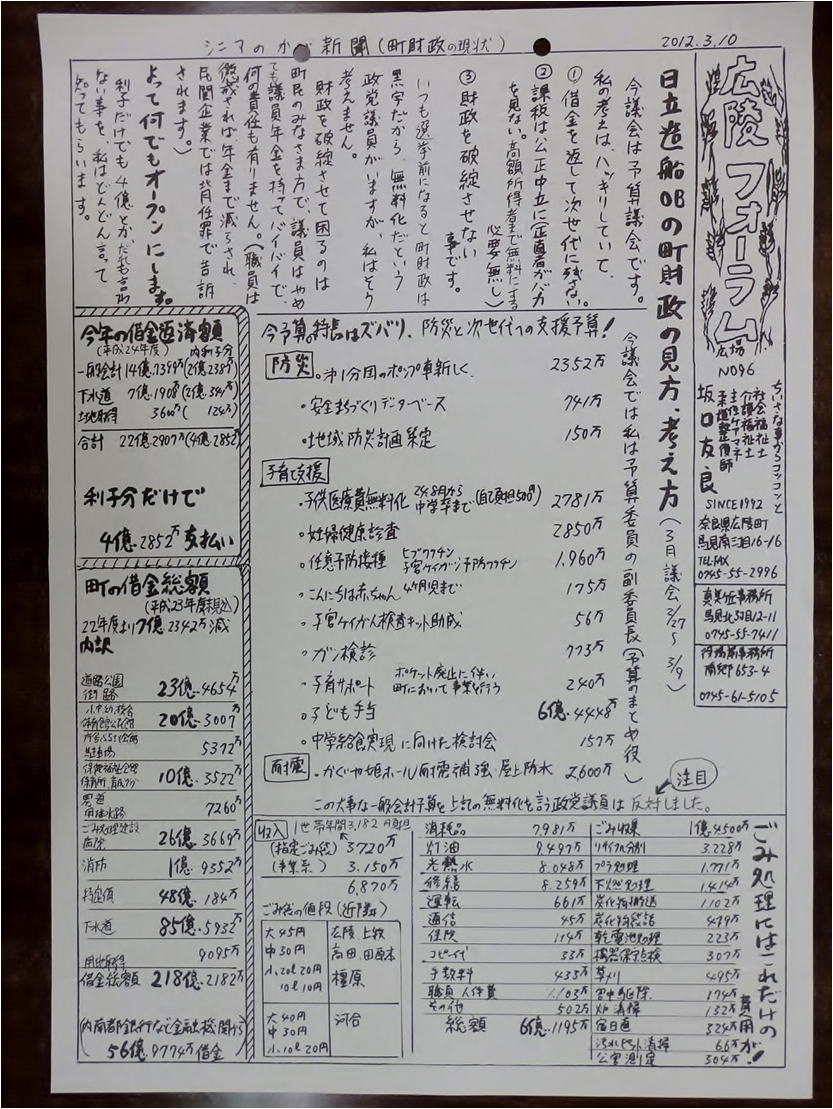 シニマのかべ新聞(町財政の現状)
2012.3.10
広陵フォーラム
広場
NO96
ちいさな事からコツコツと
社会福祉士
介護福祉士
主任ケアマネ
柔道整復師
坂口友良
SINCE1992
奈良県広陵町
馬見南三丁目16-16
TEL.FAX
0745-55-2996
真美ヶ丘事務所
馬見北5丁目12-11
0745-55-7411
役場前事務所
南郷653-4
0745-61-5105
日立造船OBの町財政の見方、考え方(3月議会2/27~3/9)
今議会では私は予算委員の副委員長(予算のまとめ役)
今議会は予算議会です。
私の考えは、ハッキリしていて、
①借金を返して次世代に残さない
②課税は公正中立に(正直者がバカ
を見ない。高額所得者まで無料にする
必要無し)
③財政を破綻させない
事です。
いつも選挙前になると町財政は
黒字だから、無料化だという
政党議員がいますが、私はそう
考えません。
財政を破綻させて困るのは
町民のみなさま方で、議員はやめ
ても議員年金を持ってバイバイで、
何の責任も有りません。(職員は
懲戒されれば年金まで減らされ、
民間企業では背任罪で告訴
されます。)
よって何でもオープンにします。
利子だけでも4億とかだれも言わ
ない事を、私はどんどん言って
知ってもらいます。
今予算の特長はズバリ、防災と次世代への支援予算!
防災
・第1分団のポンプ車新しく 2352万
・安全まちづくりデーターベース 741万
・地域防災計画策定 150万
子育て支援
・子供医療費無料化 24.8月から中学卒まで(自己負担500円) 2781万
・妊婦健康診査 2850万
・任意予防接種 ヒブワクチン 子宮ケイガン予防ワクチン 1,960万
・こんにちは赤ちゃん 4ヶ月児まで 175万
・子宮ケイがん検査キット助成 56万
・ガン検診 773万
・子育サポート ポケット廃止に伴い町において事業を行う 240万
・子ども手当 6億.4448万
・中学給食実現に向けた検討会 157万
耐震
・かぐや姫ホール耐震補強・屋上防水 2,600万
注目
この大事な一般会計予算を上記の無料化を言う政党議員は反対しました。
今年の借金返済額
(平成24年度) 内利子分
一般会計14億.7399万(2億238万)
下水道 7億.1908万(2億.341万)
土地取得 3600万(124万)
合計 22億.2907万(4億.2852万)
利子分だけで
4億.2852万支払い
町の借金総額
(平成23年度末見込)
22年度より7億.2342万減
内訳
道路公園
街路 23億.4654万
小中幼、校舎
体育館公民館 20億.3007万
5372万
保健福祉会館
保育所、育成クラブ 10億.3522万
農道
用排水路 7260万
ごみ処理建設
病院 26億.3669万
消防 1億.9352万
特定債 48億.184万
下水道 85億.5932万
用地取得 9095万
借金総額 218億.2182万
(内南都銀行など金融機関分)
56億.9774万借金
収入
1世帯年間3,182円負担
(指定ごみ袋) 3720万
(事業系) 3.150万
6,870万
ごみ袋の値段(近隣)
大45円
中30円
小.20ℓ 20円
10ℓ 10円
広陵、上牧
高田、田原本
橿原
大40円
中30円
小.10ℓ 20円
河合
ごみ処理にはこれだけの費用が!
消耗品 7,981万
灯油 9.497万
光熱水 8.048万
修繕 8.259万
運転 661万
通信 45万
保険 114万
コピー代 33万
手数料 435万
職員人件費 1.103万
その他 502万
総額 6億.1195万
ごみ収集 1億.4500万
リサイクル分別 3.228万
プラ処理 1.771万
不燃処理 1.414万
炭化物搬送 1.102万
炭化物袋詰 479万
乾電池処理 223万
機器保守点検 307万
草刈 495万
害虫駆除 174万
炉清掃 132万
宿日直 324万
汚水ピット清掃 66万
公害測定 304万